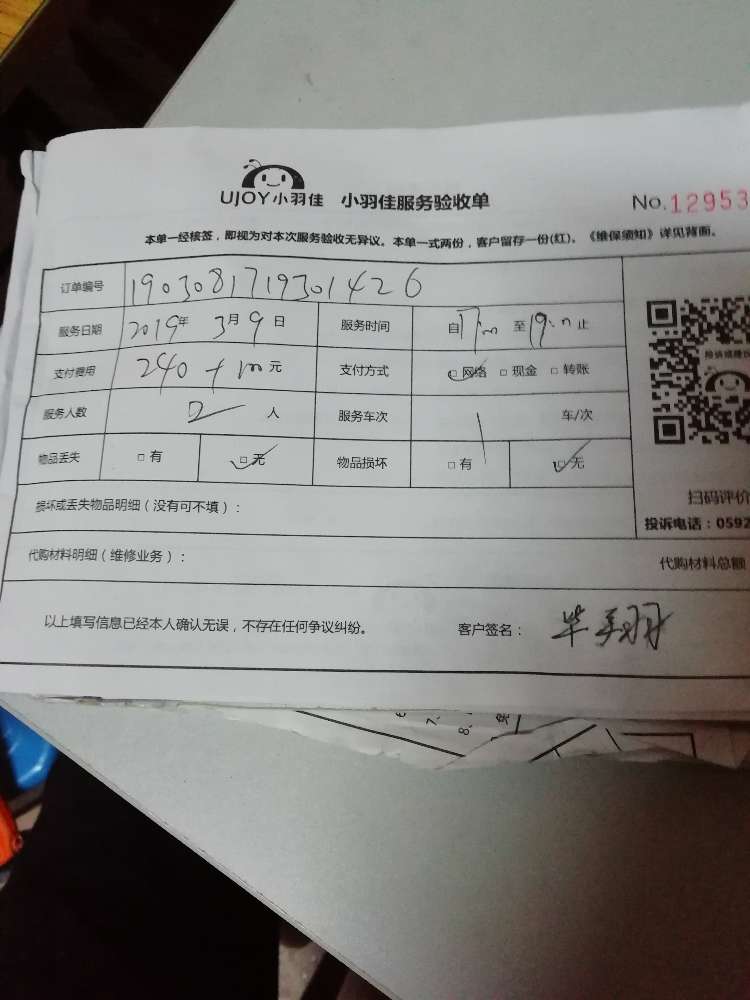 UJOY小羽佳 小羽佳服务验收单 No.12953
本单一经核签，即视为对本次服务验收无异议。本单一式两份，客户留存一份(红)。《维保须知》详见背面。
订单编号 1903081719301426
服务日期 2019年 3月9日 服务时间 自17:00 至19:00止
支付费用 240 元 支付方式 □网络 □现金 □转账
服务人数 2 人 服务车次 1 车/次
物品丢失 □有 □无 物品损坏 □有 □无
损坏或丢失物品明细（没有可不填）：
扫码评价
投诉电话：0592
代购材料明细（维修业务）： 代购材料总额
以上填写信息已经本人确认无误，不存在任何争议纠纷。 客户签名：
7、
8、